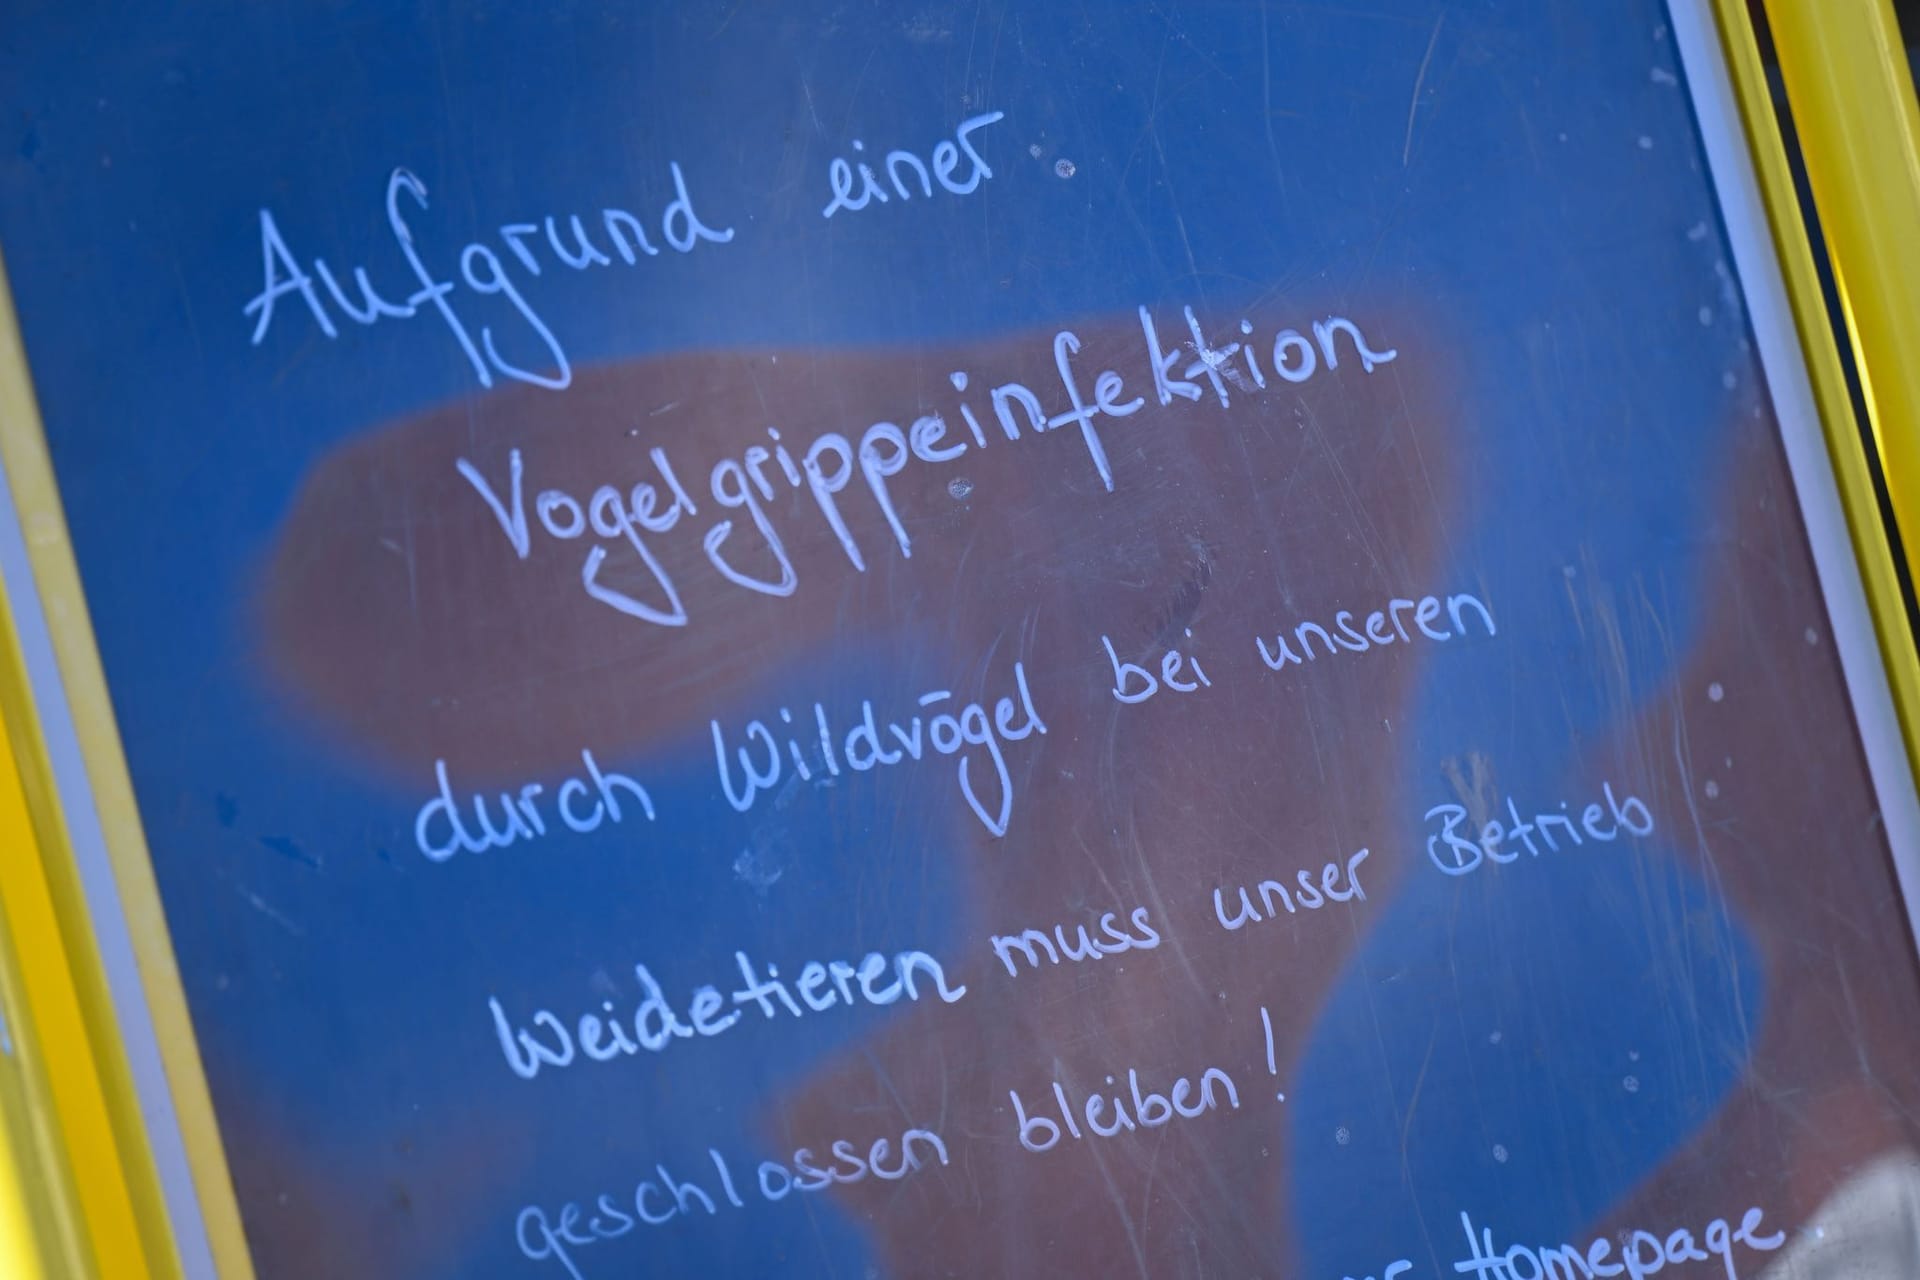 Aufgrund einer
Vogelgrippeinfektion
durch Wildvögel bei unseren
Weidetieren muss unser Betrieb
geschlossen bleiben!
Homepage.